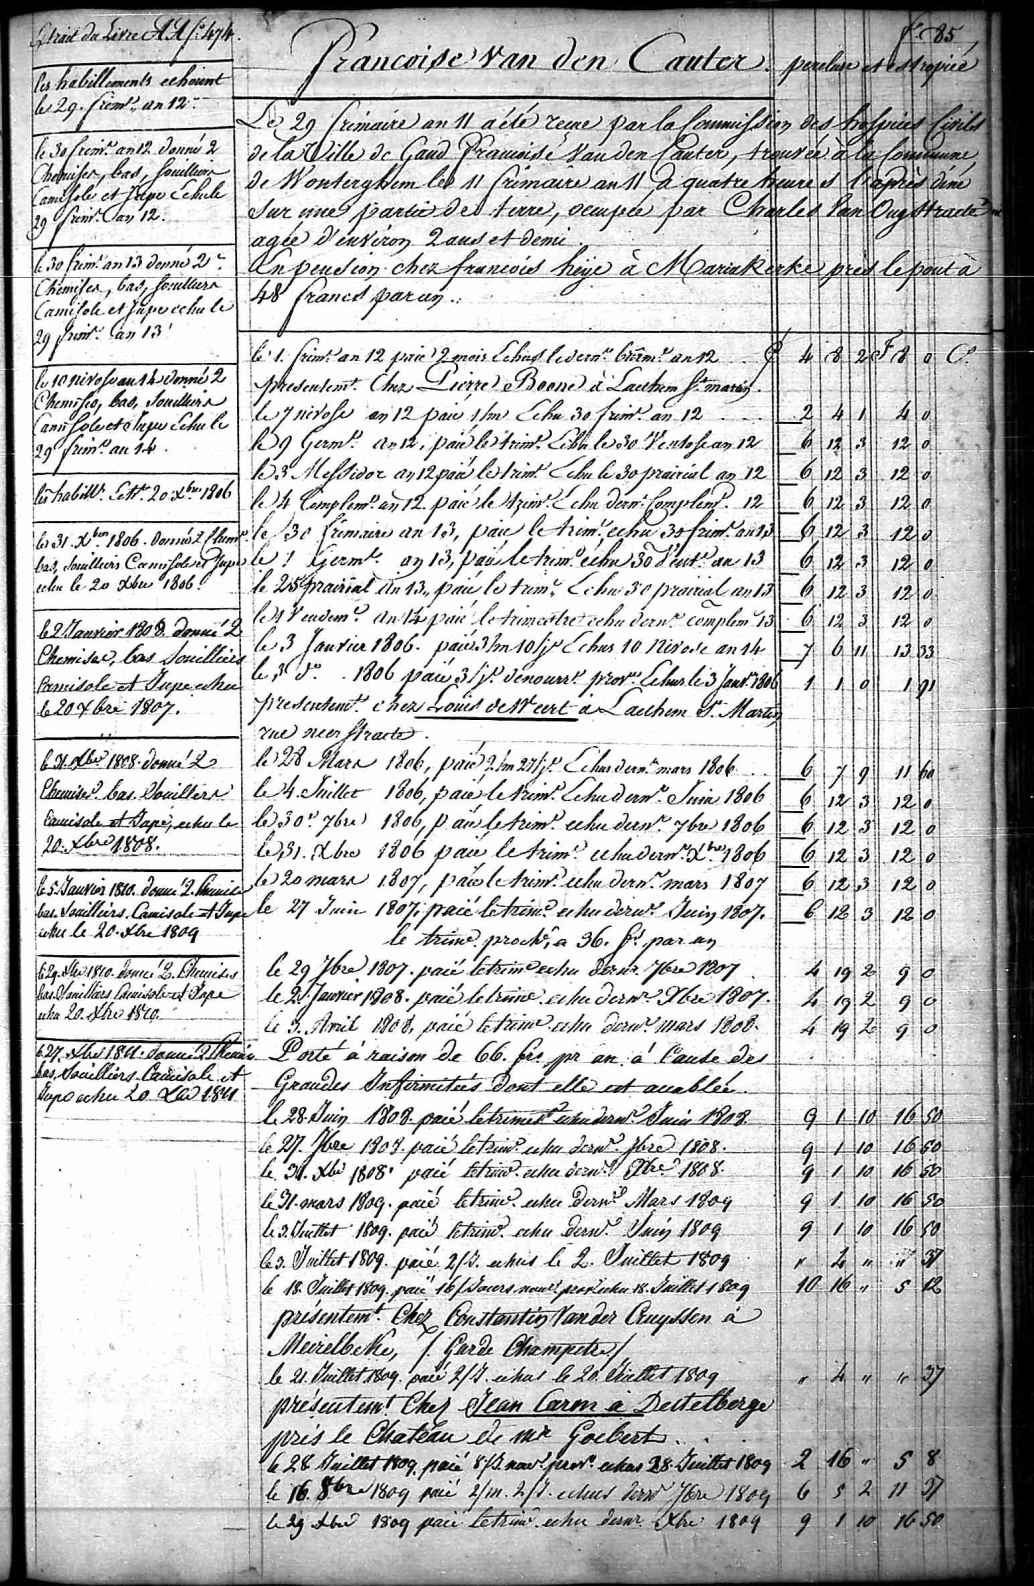 Extrait du Livre AA f° 474.
f° 85
Francoise Van den Cauter percluse et estropiée
les habillements echoient
le 29. frim.re an 12.
le 30 frim.re an 12 donné 2
Chemises, bas, souilliers
Camisole et Jupe Echu le
29 frim.re an 12.
le 30 frim.re an 13 donné 2
Chemises, bas, souilliers
Camisole et Jupe echu le
29 frim.re an 13
le 10 nivose an 14 donné 2
Chemises, bas, souilliers
Camisole et Jupe Echu le
29 frim.re an 14.
les habill.ts 20 Xbre 1806
le 31. Xbre 1806. donné 2 Chemises
bas, souilliers Camisole et Jupe
echu le 20 Xbre 1806.
le 2 Janvier 1808 donné 2
Chemises, bas souilliers
Camisole et Jupe echu
le 20 Xbre 1807.
le 31 Xbre 1808 donné 2
Chemises bas souilliers
Camisole et Jupe, echu le
20. Xbre 1808.
le 5. Janvier 1810. donné 2. Chemises
bas. souilliers. Camisole et Jupe
echu le 20. Xbre 1809
le 29. Xbre 1810. donné 2. Chemises
bas. souilliers Camisole et Jupe
echu 20. Xbre 1810.
le 27. Xbre 1811. donné 2 Chemises
bas, souilliers. Camisole et
Jupe echu 20. Xbre 1811
Le 29 frimaire an 11 a été reçue par la Commission des hospices Civils
de la Ville de Gand Francoise Van den Cauter, trouvée à la Commune
de Wonterghem le 11 frimaire an 11 à quatre heures l'après diné
sur une partie de terre, occupée par Charles Van Ouystracte
agée d'environ 2 ans et demi
En pension chez francois heye à Mariakerke près le pont à
48 francs par an.
le 1. frim.re an 12 paié 2 mois Echus le dern.r brum.re an 12 £ 4 8 2 F 8 0 C.s
presentem.t Chez Pierre Boone à Laethem St. martin
le 7 nivose an 12 paié 1/m Echu 30 frim.re an 12 2 4 1 4 0
le 9 Germ.l an 12, paié le trim.e Echu le 30 Ventose an 12 6 12 3 12 0
le 3 Messidor an 12 paié le trim.e Echu le 30 prairial an 12 6 12 3 12 0
le 4 Complem.re an 12 paié le trim.e Echu dern.r Complem.re 12 6 12 3 12 0
le 30 frimaire an 13, paié le trim.e echu 30 frim.re an 13 6 12 3 12 0
le 1 Germ.l an 13, paié le trim.e echu 30 Vent.e an 13 6 12 3 12 0
le 25 prairial an 13, paié le trim.e Echu 30 prairial an 13 6 12 3 12 0
le 4 Vendem.re an 14 paié le trimestre echu dern.r complem.re 13 6 12 3 12 0
le 3 Janvier 1806. paié 3/m 10/j.s Echus 10 Nivose an 14 7 6 11 13 33
le 3 d.o 1806 paié de nourr.e prov.re Echus le 3 Janv.r 1806 1 1 0 1 91
presentem.t chez Louis de Weert à Laethem St. Martin
rue neerstracte.
le 28 Mars 1806, paié 2/m 27/j.s Echus dern.r mars 1806 6 7 9 11 60
le 4. Juillet 1806, paié le trim.e Echu dern.r Juin 1806 6 12 3 12 0
le 30 7bre 1806, paié le trim.e echu dern.r 7bre 1806 6 12 3 12 0
le 31. Xbre 1806 paié le trim.e echu dern.r Xbre 1806 6 12 3 12 0
le 20 mars 1807, paié le trim.e echu dern.r mars 1807 6 12 3 12 0
le 27 Juin 1807, paié le trim.e echu dern.r Juin 1807. 6 12 3 12 0
le trim.e proch.n a 36. f.s par an
le 29 7bre 1807. paié le trim.e echu dern.r 7bre 1807 4 19 2 9 0
le 2. Janvier 1808. paié le trim.e echu dern.r Xbre 1807. 4 19 2 9 0
le 3. Avril 1808, paié le trim.e echu dern.r mars 1808. 4 19 2 9 0
Porté à raison de 66. frs. pr an à Cause des
Grandes Infirmitées dont elle est accablée
le 28. Juin 1808. paié le trimest.e echu dern.r Juin 1808. 9 1 10 16 50
le 27. 7bre 1808. paié le trim.e echu dern.r 7bre 1808. 9 1 10 16 50
le 31. Xbre 1808 paié le trim.e echu dern.r Xbre 1808. 9 1 10 16 50
le 31. mars 1809. paié le trim.e echu dern.r Mars 1809 9 1 10 16 50
le 3. Juillet 1809. paié le trim.e echu dern.r Juin 1809 9 1 10 16 50
le 3. Juillet 1809. paié 2/J. echus le 2. Juillet 1809 " 4 " " 37
le 18. Juillet 1809. paié 16/Jours echu 18. Juillet 1809 10 16 " 5 12
présentem.t Chez Constantin Van der Cruyssen à
Meirelbeke, / Garde Champetre /
le 21. Juillet 1809. paié 2/J. echus le 20. Juillet 1809 " 4 " " 37
présentem.t Chez Jean Carm à Destelberge
près le Chateau de Mr. Goebert.
le 28. Juillet 1809. paié 8/J. echus 28. Juillet 1809 2 16 " 5 8
le 16. 8bre 1809 paié 2/m. 2/J. echus dern.r 7bre 1809 6 5 2 11 37
le 29 Xbre 1809 paié le trim.e echu dern.r Xbre 1809 9 1 10 16 50